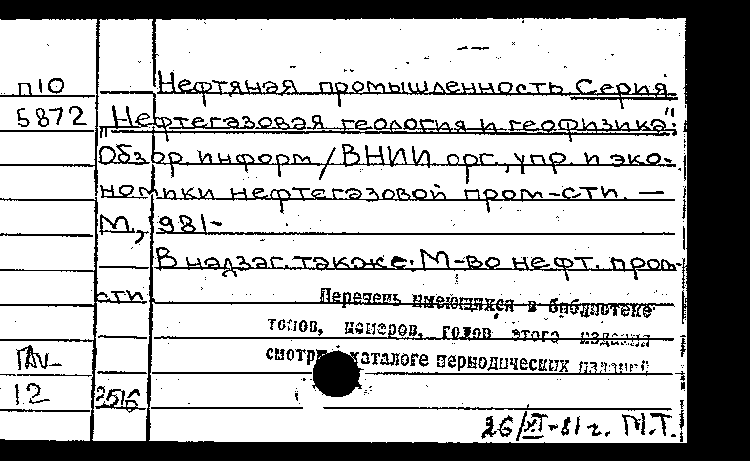 П10
5872
Нефтяная промышленность Серия
"Нефтегазовая геология и геофизика":
Обзор информ/ВНИИ орг., упр. и эко-
номики нефтегазовой пром-сти. —
М., 1981-
В надзаг. также: М-во нефт. пром-
сти
Перечень имеющихся в библиотеке
томов, номеров, годов этого издания
смотри каталоге периодических изданий
12
2516
26/XI-81г. М.Т.